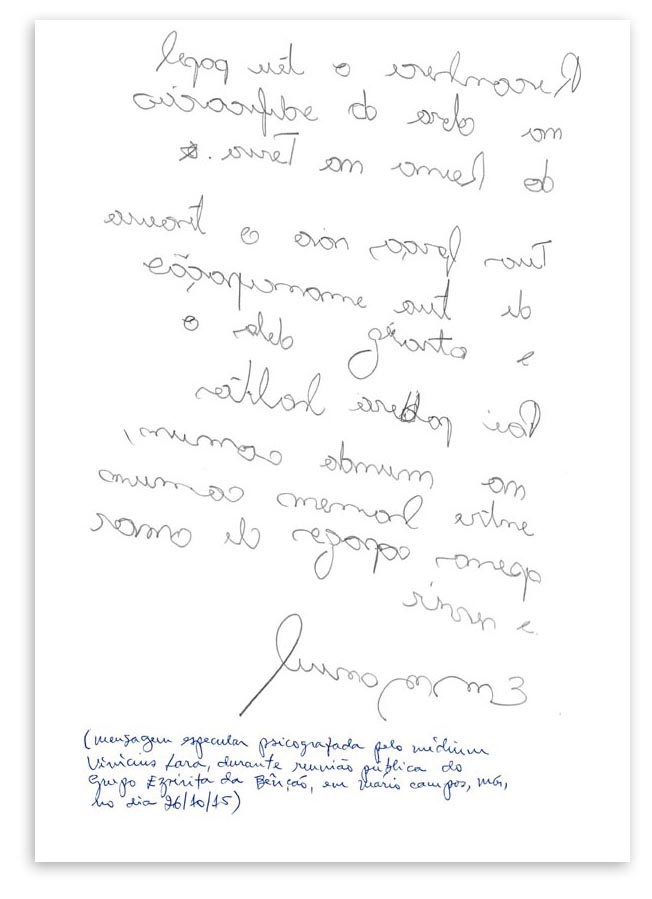 Reconhece o teu papel
na obra de edificação
do Reino na Terra.
Tuas forças são o tesouro
de tua emancipação
e delas o
Pai poderá habitar
no mundo comum,
entre homens comuns
apenas capazes de amar
e servir
Emmanuel
(mensagem especular psicografada pelo médium
Vinicius Lara, durante reunião pública do
Grupo Espírita da Bênção, em Mário Campos, MG,
no dia 26/10/15)